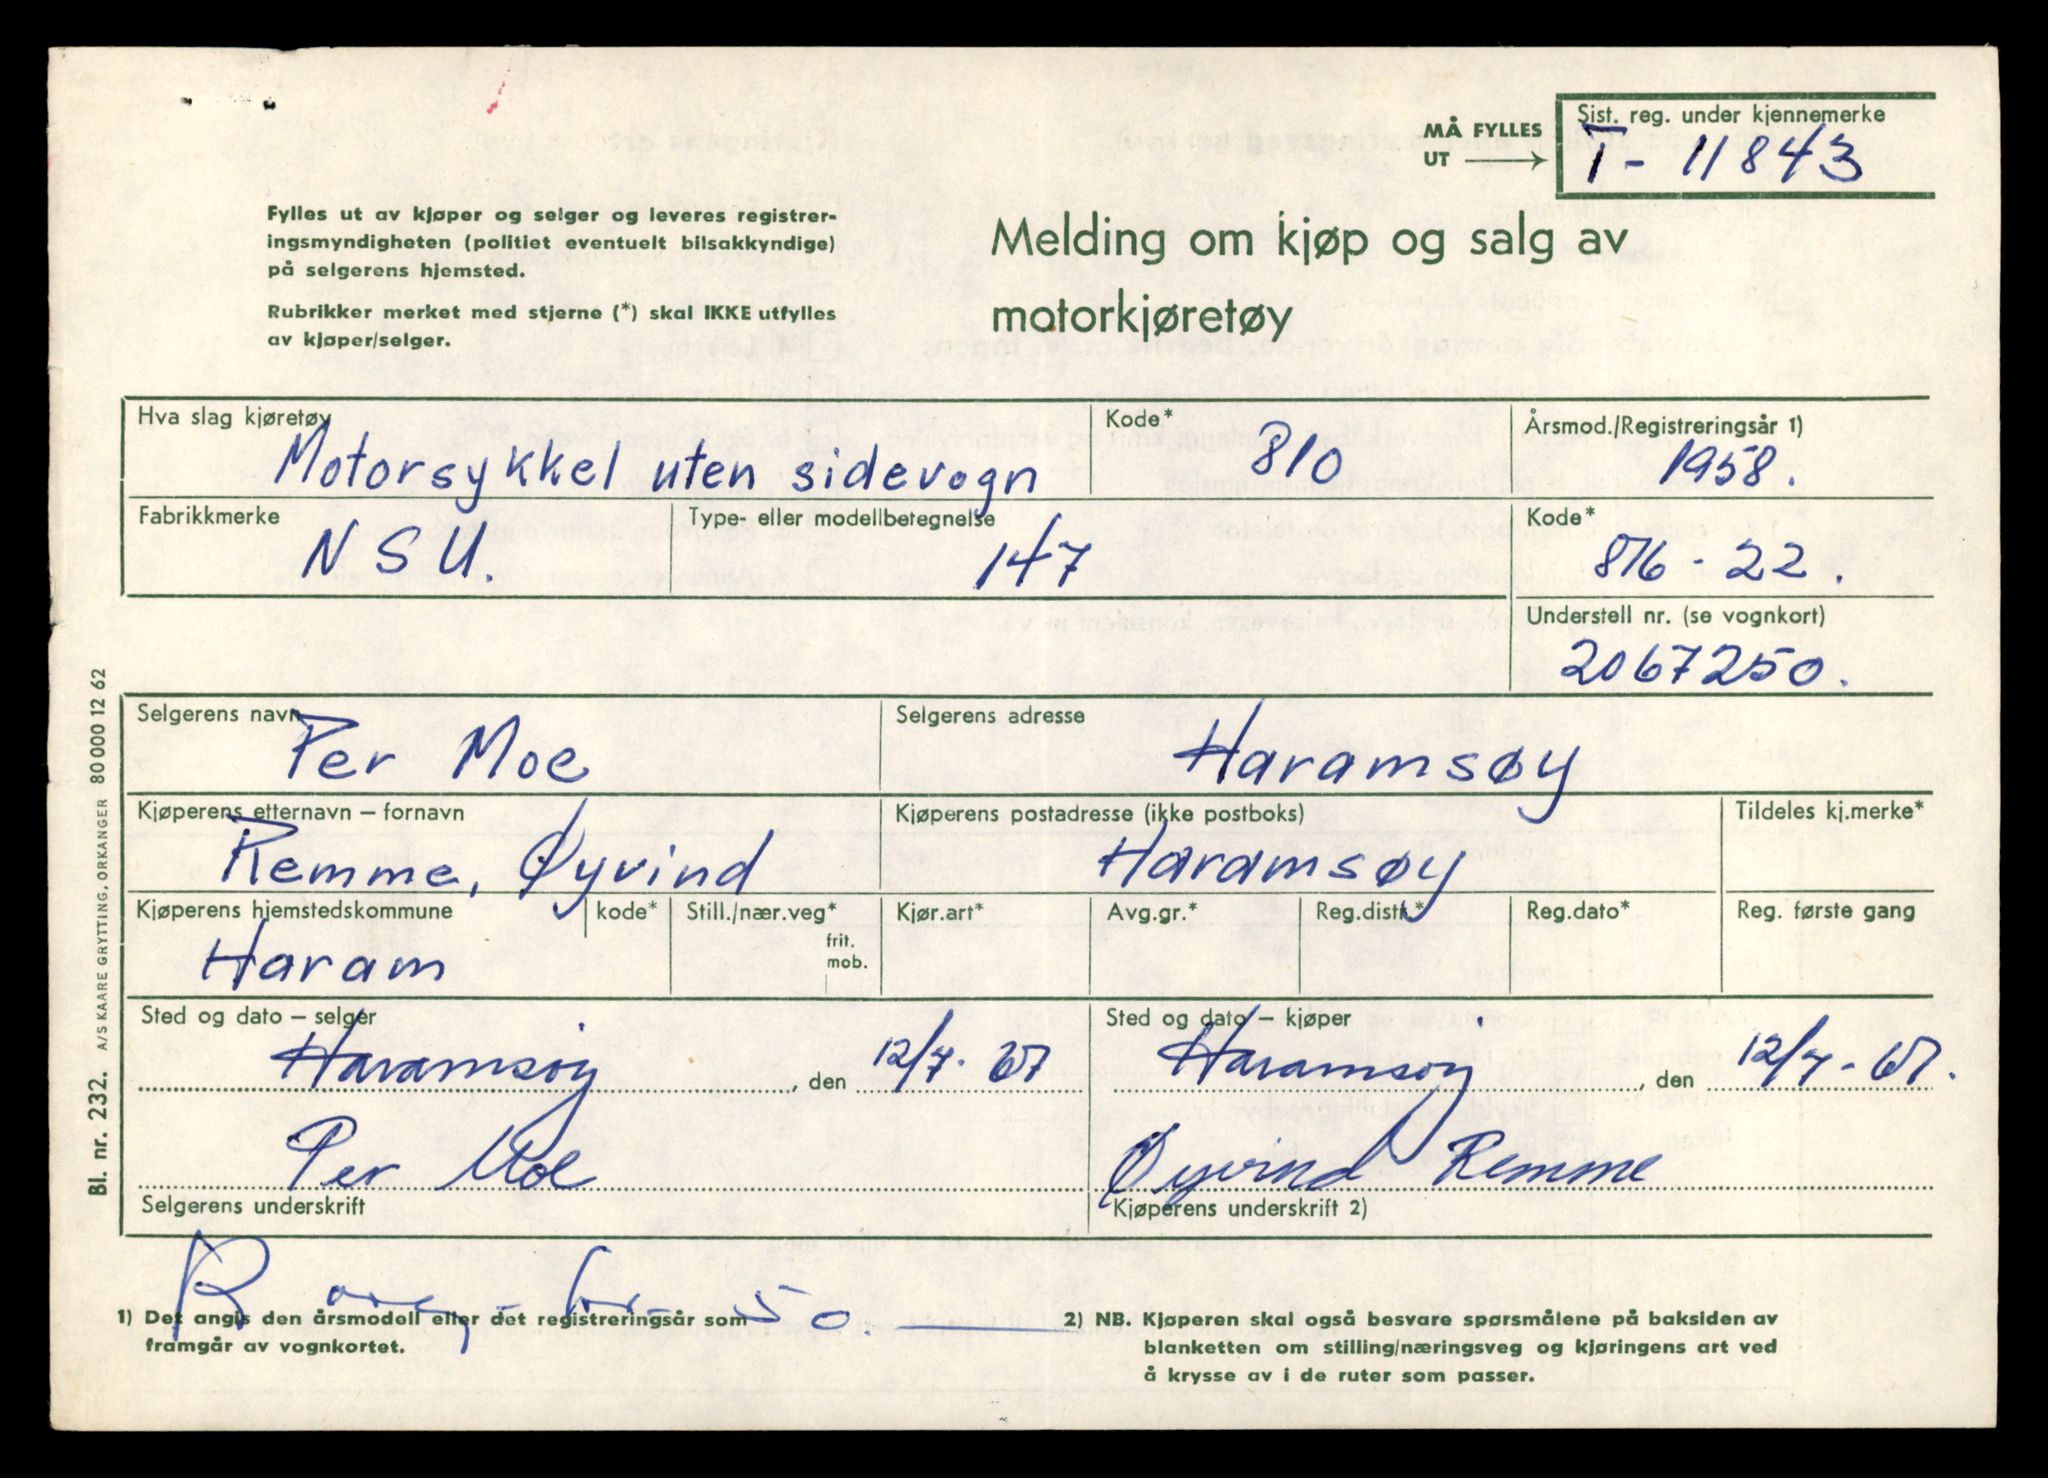 MÅ FYLLES UT
Sist. reg. under kjennemerke
T- 11843
Fylles ut av kjøper og selger og leveres registrer-
ingsmyndigheten (politiet eventuelt bilsakkyndige)
på selgerens hjemsted.
Rubrikker merket med stjerne (*) skal IKKE utfylles
av kjøper/selger.
Melding om kjøp og salg av
motorkjøretøy
Hva slag kjøretøy
Motorsykkel uten sidevogn
Kode*
810
Årsmod./Registreringsår 1)
1958.
Fabrikkmerke
NSU.
Type- eller modellbetegnelse
147
Kode*
876-22.
Understell nr. (se vognkort)
2067250.
Selgerens navn
Per Moe
Selgerens adresse
Haramsøy
Kjøperens etternavn – fornavn
Remme, Øyvind
Kjøperens postadresse (ikke postboks)
Haramsøy
Tildeles kj.merke*
Kjøperens hjemstedskommune
Haram
kode*
Still./nær.veg*
frit.
mob.
Kjør.art*
Avg.gr.*
Reg.distr.*
Reg.dato*
Reg. første gang
Sted og dato – selger
Haramsøy, den 12/7. 67
Sted og dato – kjøper
Haramsøy, den 12/7-67.
Per Moe
Selgerens underskrift
Øyvind Remme
Kjøperens underskrift 2)
50.
1) Det angis den årsmodell eller det registreringsår som
framgår av vognkortet.
2) NB. Kjøperen skal også besvare spørsmålene på baksiden av
blanketten om stilling/næringsveg og kjøringens art ved
å krysse av i de ruter som passer.
Bl. nr. 232. A/S KAARE GRYTTING, ORKANGER 80 000 12 62